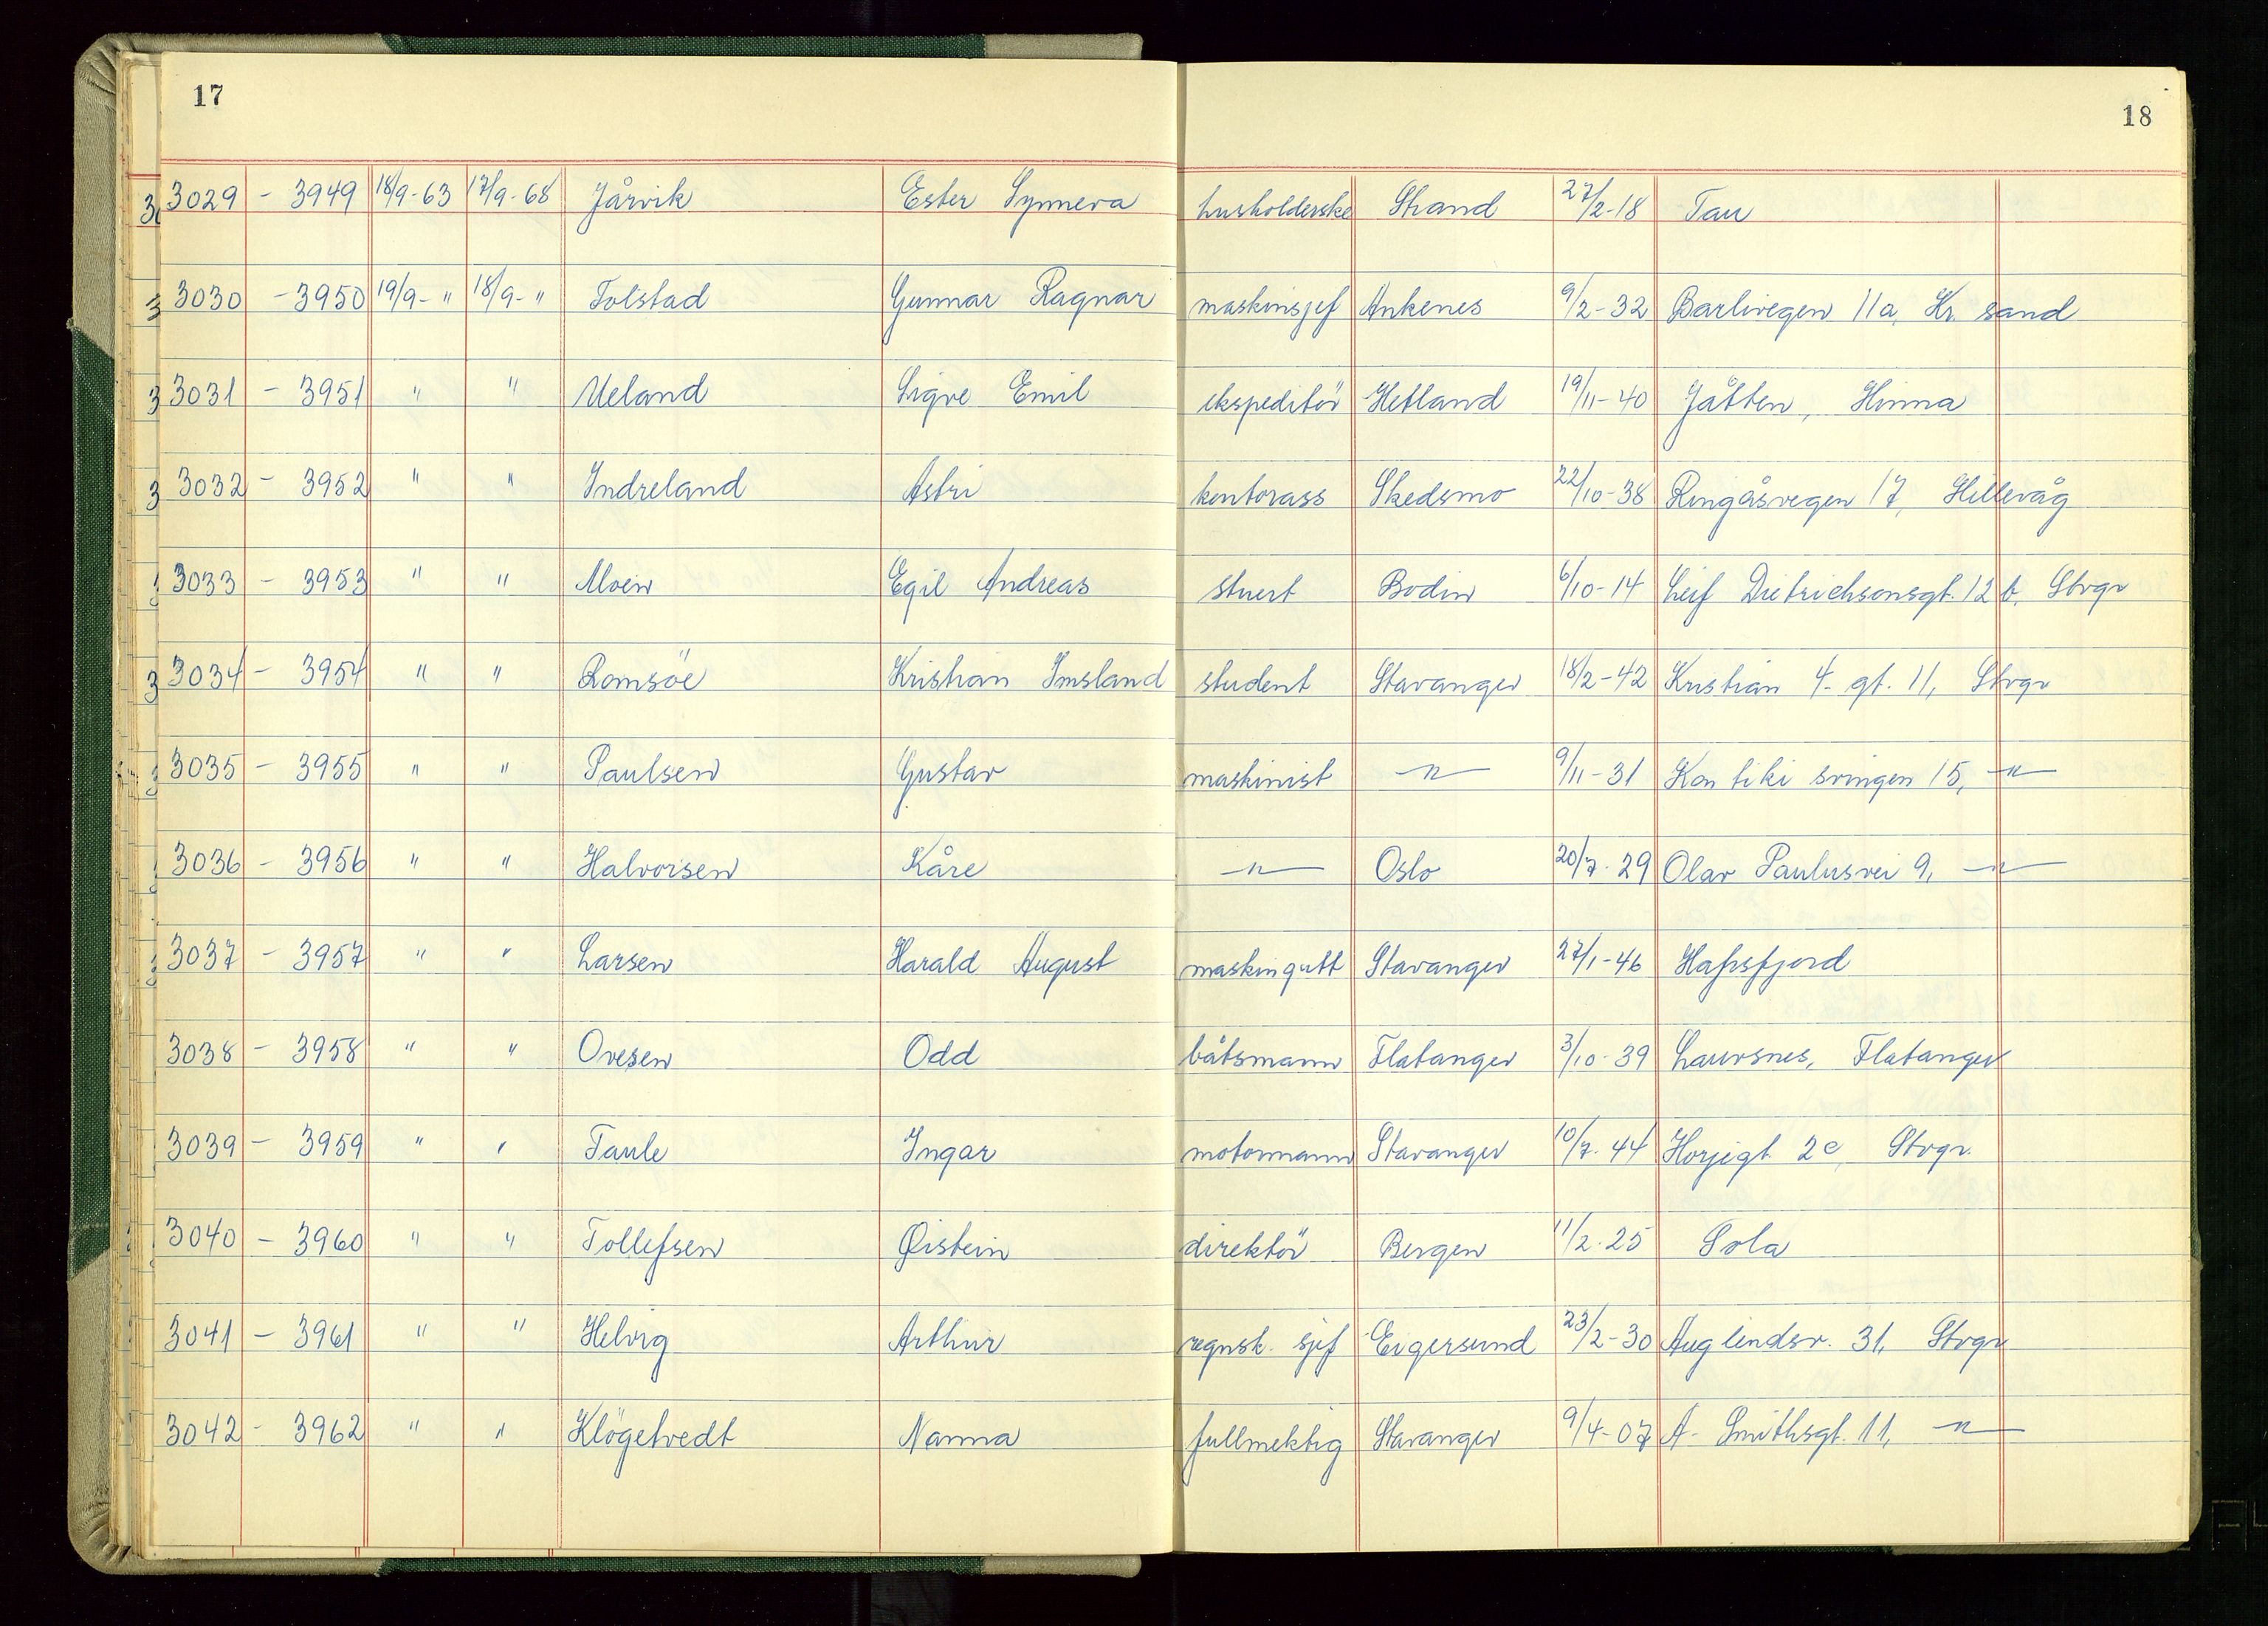 17
18
3029 - 3949 18/9-63 17/9-68 Jårvik Ester Synneva husholderske Strand 27/2-18 Tau
3030 - 3950 19/9- " 18/9- " Tolstad Gunnar Ragnar maskinsjef Ankenes 9/2-32 Barlivegen 11a, Kr. sand
3031 - 3951 " " Ueland Sigve Emil ekspeditör Hetland 19/11-40 Jåtten, Hinna
3032 - 3952 " " Indreland Astri kontorass Skedsmo 22/10-38 Ringåsvegen 17, Hillevåg
3033 - 3953 " " Moen Egil Andreas stuert Bodin 6/10-14 Leif Dietrichsonsgt. 12 b, Stvgr
3034 - 3954 " " Romsöe Kristian Imsland student Stavanger 18/2-42 Kristian 4. gt. 11, Stvgr
3035 - 3955 " " Paulsen Gustav maskinist —"— 9/11-31 Kon tiki svingen 15, —"—
3036 - 3956 " " Halvorsen Kåre —"— Oslo 20/7-29 Olav Paulusvei 9, —"—
3037 - 3957 " " Larsen Harald August maskingutt Stavanger 27/1-46 Hafrsfjord
3038 - 3958 " " Ovesen Odd båtsmann Flatanger 3/10-39 Lauvsnes, Flatanger
3039 - 3959 " " Taule Ingar motormann Stavanger 10/7-44 2c, Stvgr.
3040 - 3960 " " Tollefsen Øistein direktör Bergen 11/2-25 Sola
3041 - 3961 " " Helvig Arthur regnsk. sjef Eigersund 23/2-30 Auglendsv. 31, Stvgr
3042 - 3962 " " Klögetvedt Nanna fullmektig Stavanger 9/4-07 A. Smithsgt. 11, —"—